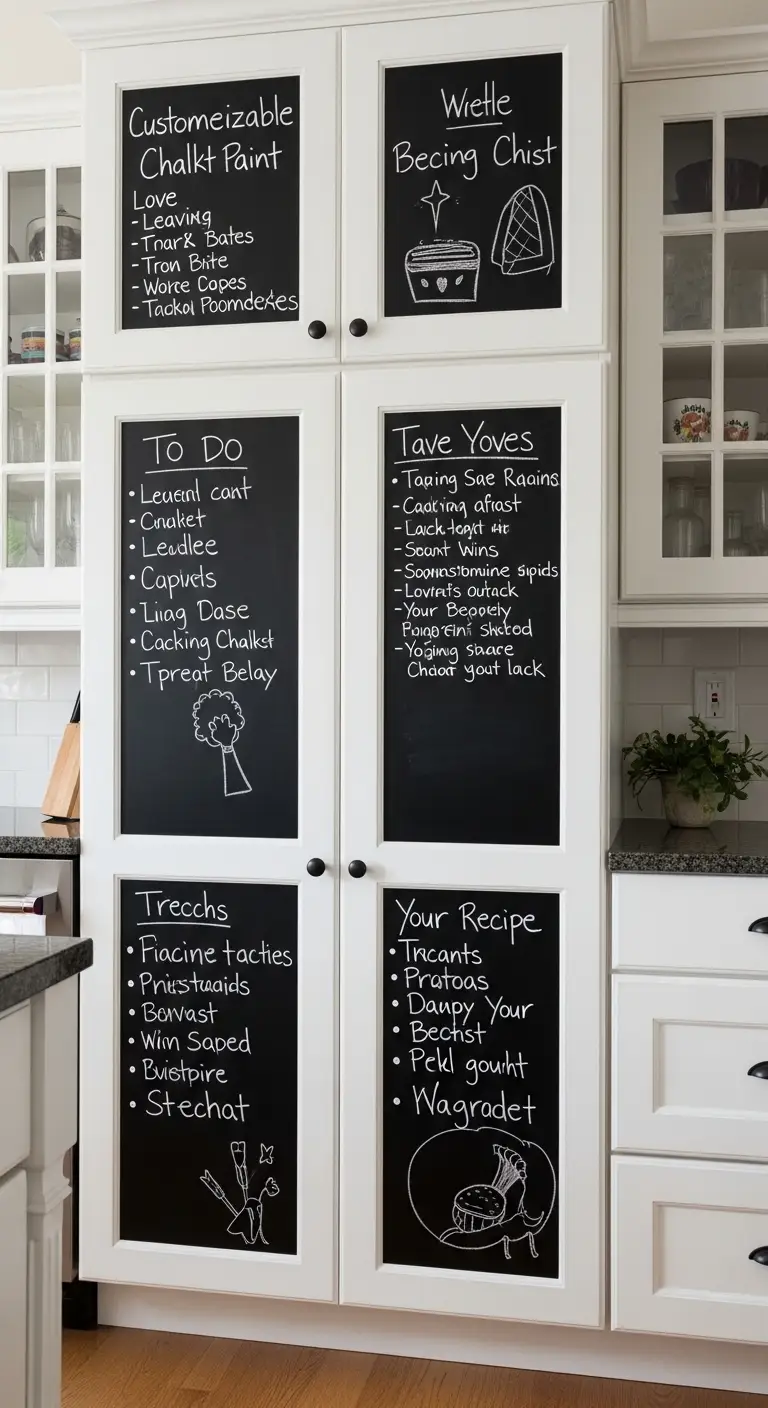 Customeizable
Chalkt Paint
Love
- Leaving
- Tnark Bates
- Tron Brite
- Worce Copes
- Tackal Poomdekes
Wietle
Becing Chist
To Do
• Leuenl cant
• Cnalket
• Leadlee
• Caplvets
• Liag Dase
• Cacking Chalkst
• Tpreat Belay
Tave Yoves
• Taping Sae Raains
- Caoking afrast
- Lack-togt
- Seant Wins
- Soonastomine sipids
- Lovnt's outack
- Your Bepoely
skotod
- Yogiing snace
Chaor yout lack
Trecchs
• Fiacine tacties
• Pnistuaids
• Bonvast
• Win Saped
• Buistpire
• Stechat
Your Recipe
• Tncants
• Pratoas
• Daupy Your
• Bechst
• Pekl gouht
• Wagradet